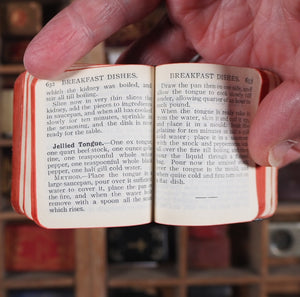 652 BREAKFAST DISHES.
which the kidney was boiled, and
stir all till boiling.
Slice now in very thin slices the
kidney, add the pieces to ingredients
in saucepan, and when all has cooled
slowly for ten minutes, sprinkle in
the seasoning, and the dish is now
ready for the table.
Jellied Tongue.—One ox tongue,
one quart beef stock, one carrot, one
onion, one teaspoonful whole
pepper, one teaspoonful whole black
pepper, one half gill cold water.
METHOD.—Place the tongue in a
large saucepan, pour over it sufficient
water to cover it, place the pan on
the fire, and when the water boils
remove with a spoon all the scum
which rises.
BREAKFAST DISHES.
Draw the pan then on one side, and
allow the tongue to cook slowly till
tender, allowing quarter of an hour to
each pound.
When the tongue is ready take it
from the water, skin it
and place it in a
for ten minutes in a little
cold water—place it in a
with the stock and peppercorns,
all over the fire till boiling
the liquid through a
Pour now the strained
over the tongue in the mould, and
when quite cold and firm turn out on
a flat dish.